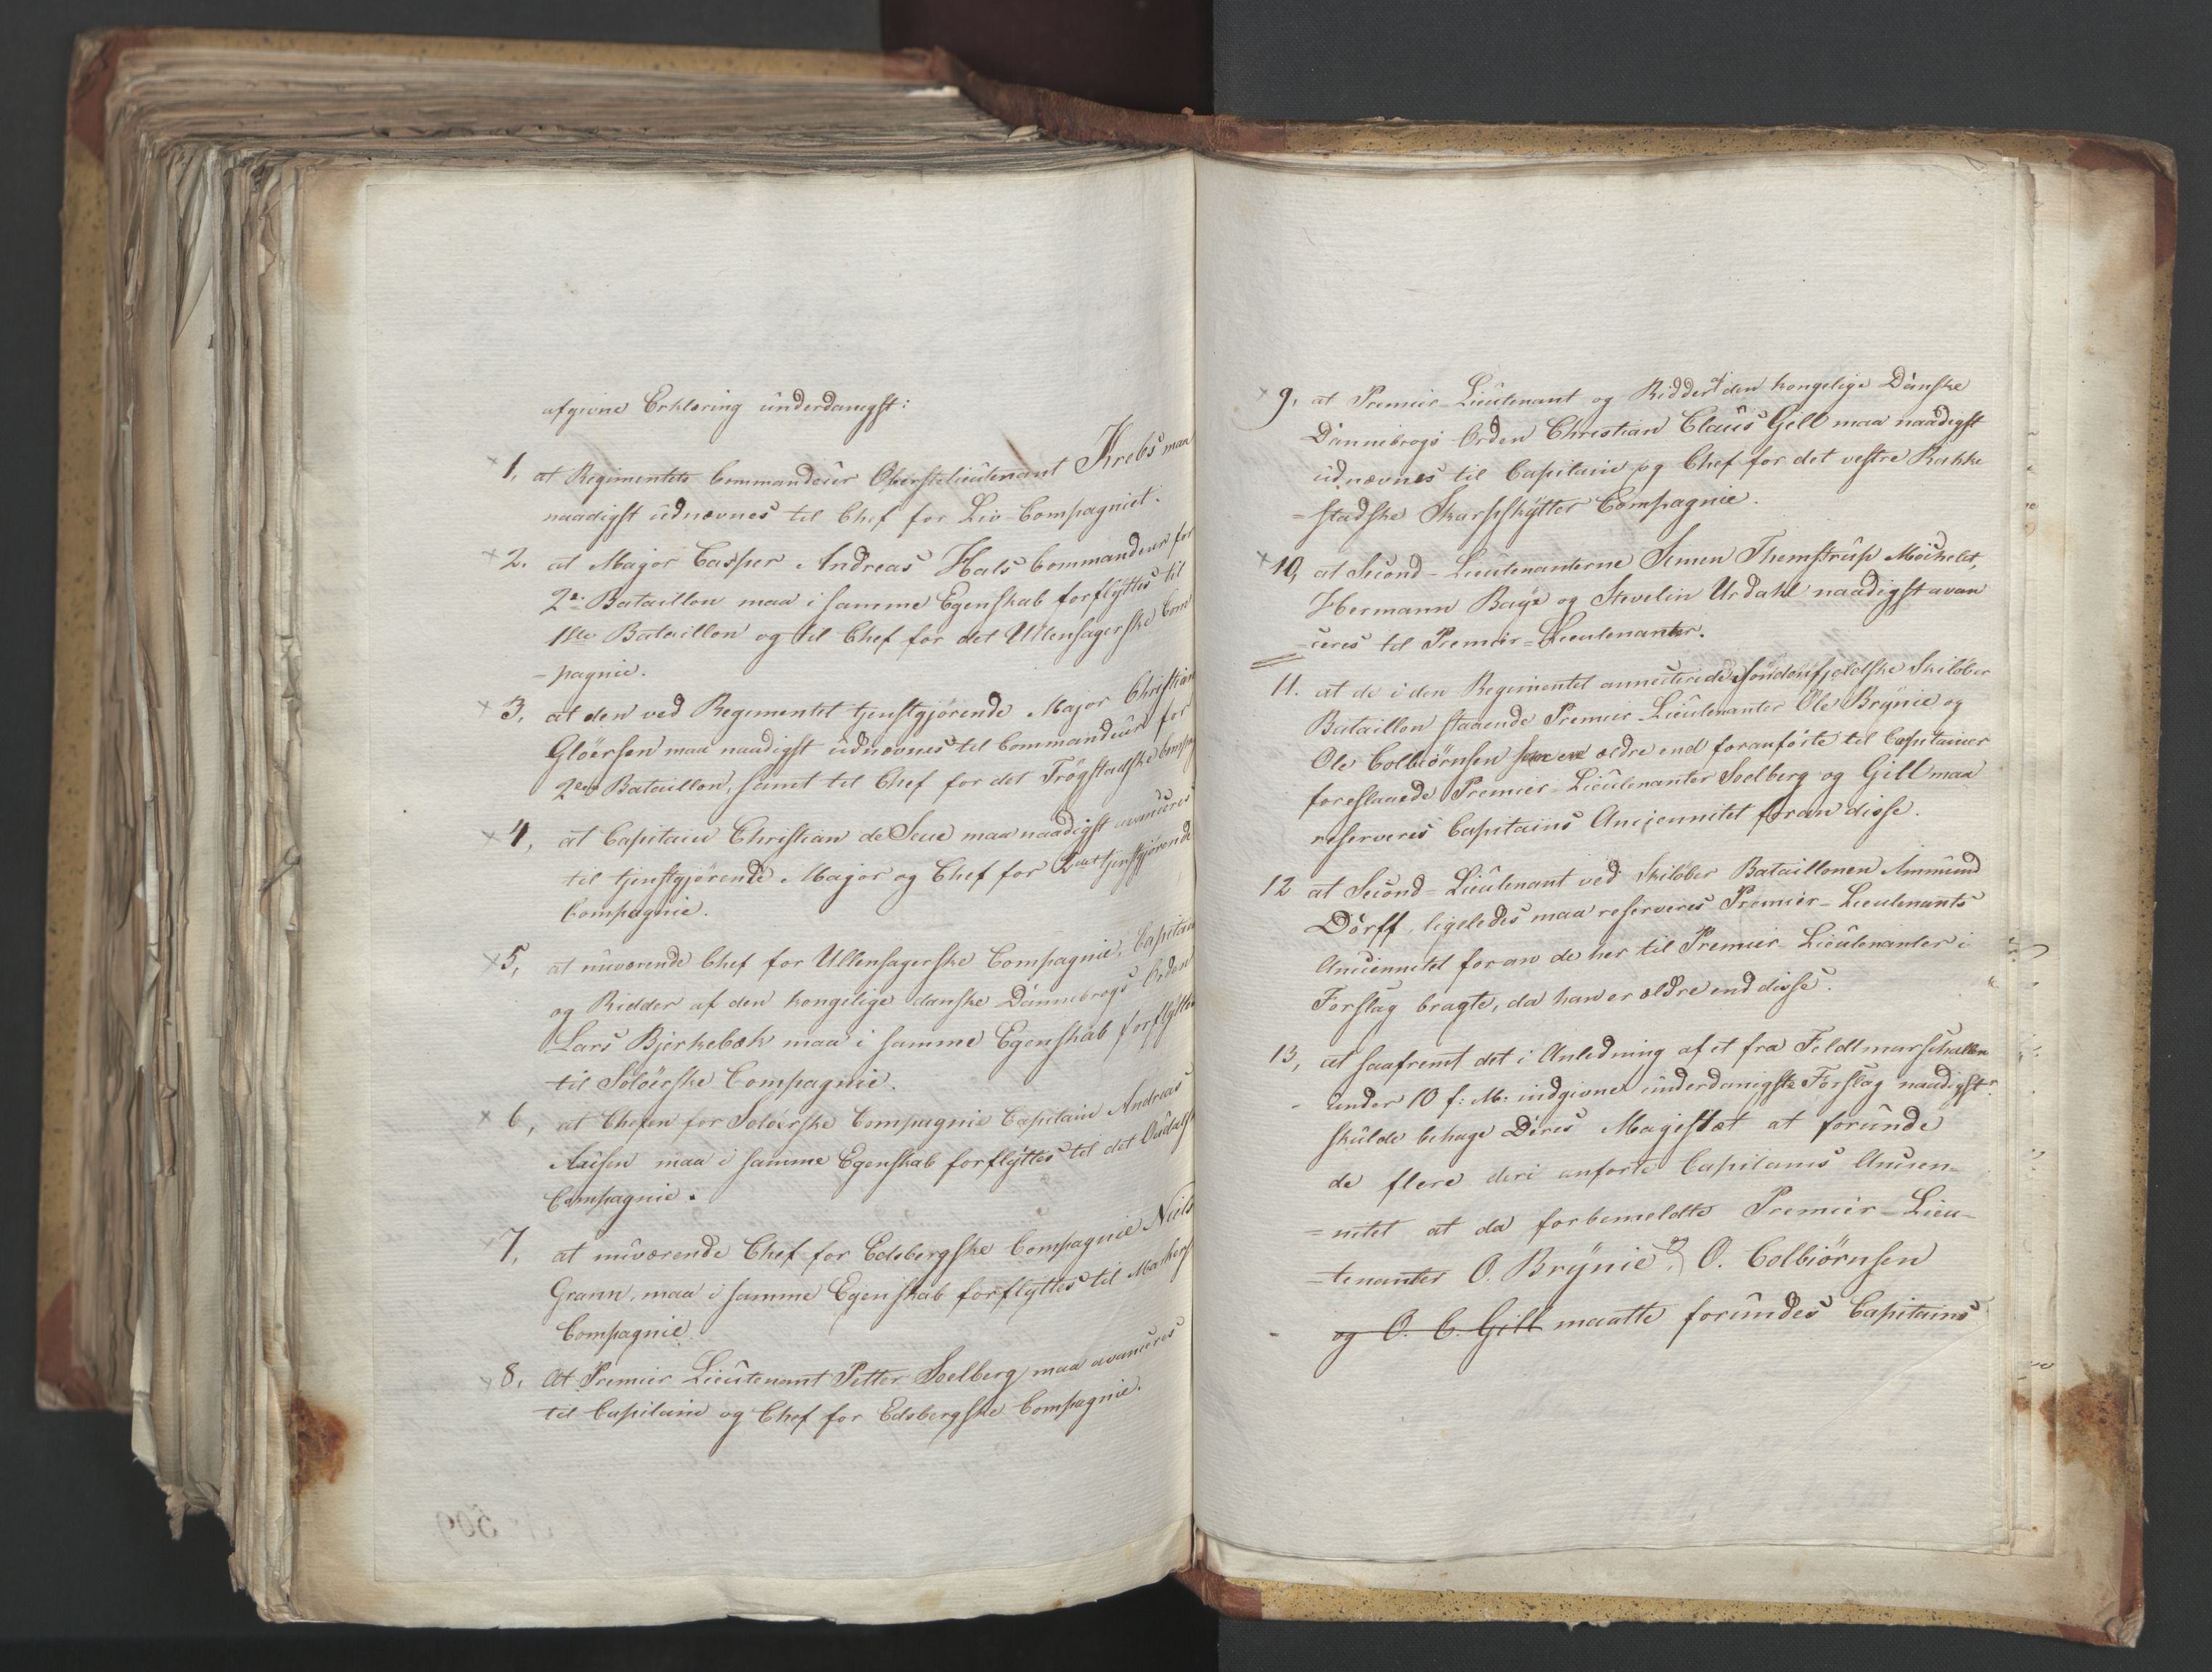 afgivne Erklæring underdanigst:
1, at Regimentets Commandeur Oberstlieutenant Krebs maa
naadigst udnævnes til Chef for Liv-Compagniet.
2. at Major Casper Andreas Hals Commandeur for
2n Bataillon maa i samme Egenskab forflyttes til
1ste Bataillon og til Chef for det Ullensagerske Com
-pagnie.
3, at den ved Regimentet tjenstgjørende Major Christian
Glöersen maa naadigst udnævnes til Commandeur for
2den Bataillon, samt til Chef for det Trögstadske Compag
4, at Capitain Christian de Seue maa naadigst avanceres
til tjenstgjørende Major og Chef for 2det tjenstgjørende
Compagnie.
5, at nuværende Chef for Ullensagerske Compagnie, Capitain
og Ridder af den kongelige danske Dannebrogs Orden
Lars Bjerkebæk maa i samme Egenskab forflyttes
til Solöerske Compagnie.
6, at Chefen for Solöerske Compagnie Capitain Andreas
maa i samme Egenskab forflyttes til det
Compagnie.
7, at nuværende Chef for Edsbergske Compagnie Niels
Grann, maa i samme Egenskab forflyttes til
Compagnie.
8, At Premier Lieutenant Petter Soelberg maa avanceres
til Capitain og Chef for Edsbergske Compagnie.
9, at Premier-Lieutenant og Ridder af den kongelige Danske
Dannebrogs Orden Christian Claus Gill maa naadigst
udnævnes til Capitain og Chef for det vestre Rakke
=stadske Skarpskytter Compagnie.
10, at Second-Lieutenanterne Simen Themstrup Möskelet,
Hermann Baye og Stvelin Urdahl naadigst avan
=ceres til Premier=Lieutenanter.
11. at de i den Regimentet annecterede Söndenfjeldske Skilöber
Bataillon staaende Premier-Lieutenanter Ole Brynie og
Ole Colbiörnsen som ere ældre end foranförte til Capitainer
foreslaaede Premier-Lieutenanter Soelberg og Gill maa
reserveres Capitains Anciennitet foran disse.
12 at Second-Lieutenant ved Skilöber Bataillonen Ammund
Dörff, ligeledes maa reserveres Premier-Lieutenants
Anciennitet foran de her til Premier-Lieutenanter i
Forslag bragte, da han er ældre end disse.
13, at saafremt det i Anledning af et fra Feldtmarschallen
under 10 f: M: indgivne underdanigste Forslag naadigst
skulde behage Deres Magistæt at forunde
de flere deri anförte Capitains Ancien-
=nitet at da forbemeldte Premier-Lieu-
=tenanter O. Brynie og O. Colbiörnsen
og O. C. Gill maatte forundes Capitains